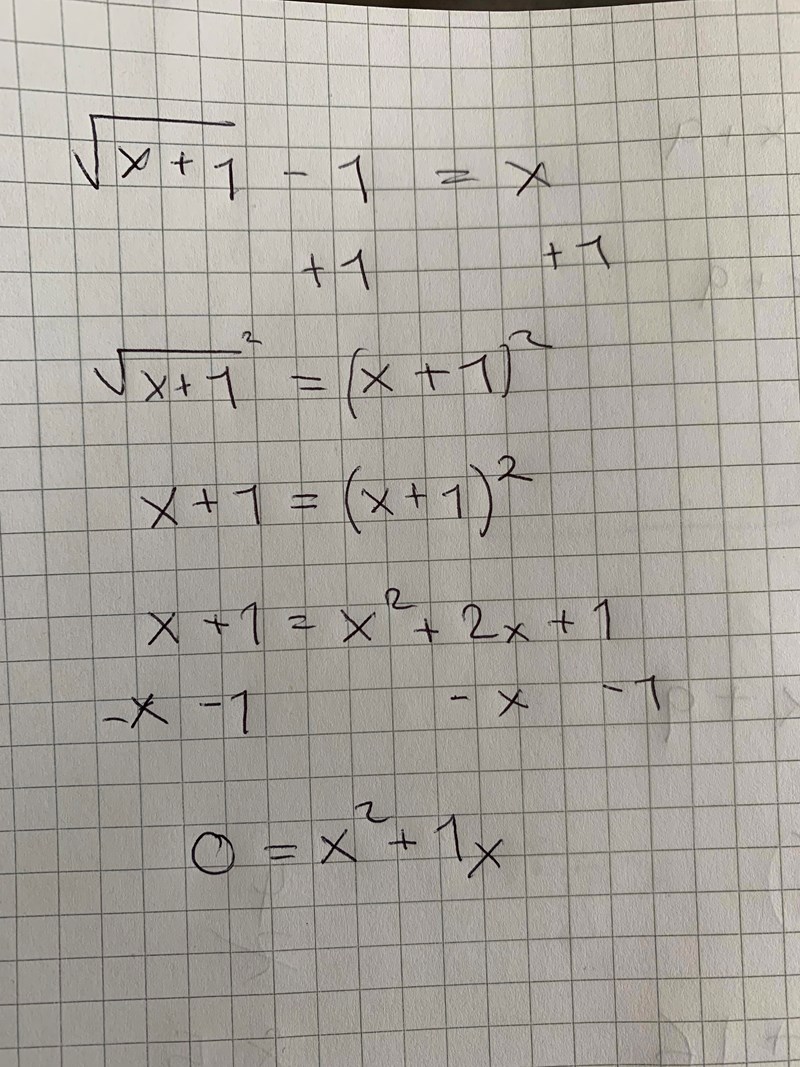 √x+1 - 1 = x
+1 +1
√x+1² = (x+1)²
x+1 = (x+1)²
x+1 = x²+2x+1
-x -1 -x -1
0 = x²+1x